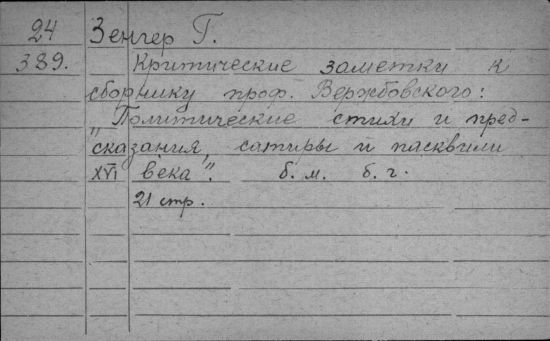 24 Зенгер Г.
389. Критические заметки к
сборнику проф. Вержбовского:
„Политические стихи и пред-
сказания, сатиры и пасквили
XVI века". б. м. б. г.
21 стр.